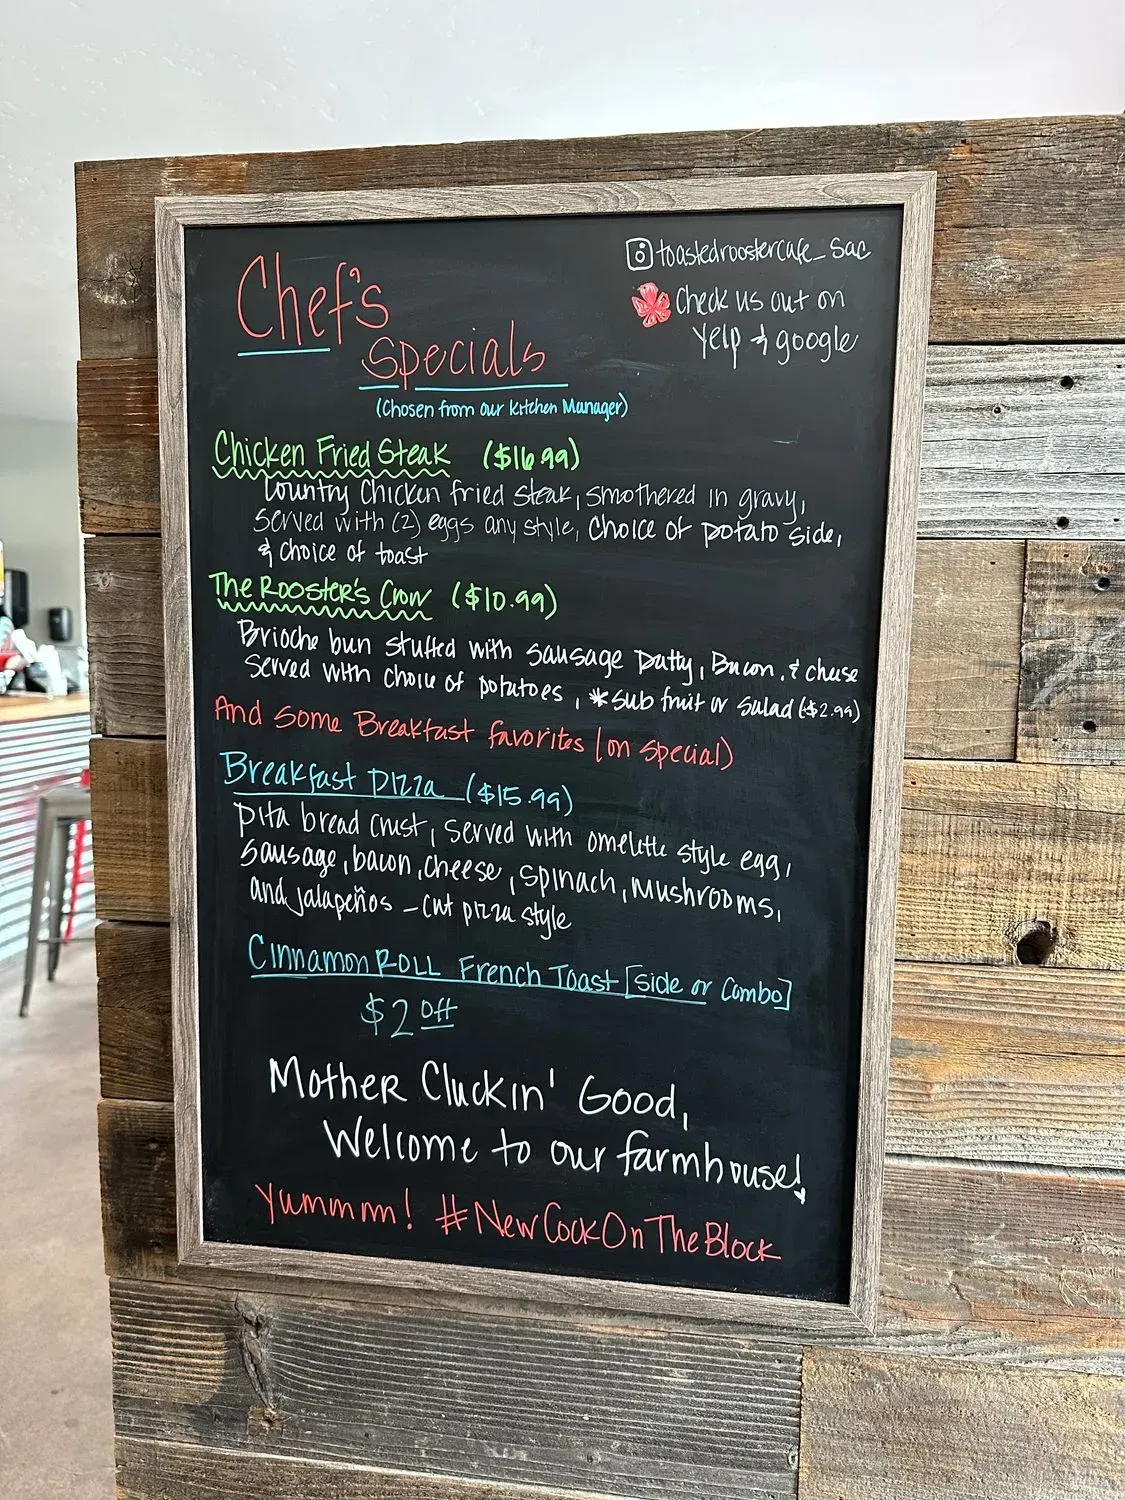 Chef's
Specials
toastedroostercafe_sac
Check us out on
Yelp & google
(Chosen from our Kitchen Manager)
Chicken Fried Steak ($16.99)
Country Chicken fried steak, smothered in gravy,
served with (2) eggs any style, choice of potato side,
& choice of toast
The Rooster's Crow ($10.99)
Brioche bun stuffed with sausage patty, Bacon, & cheese
served with choice of potatoes, *sub fruit or salad ($2.99)
And some Breakfast favorites (on special)
Breakfast Pizza ($15.99)
Pita bread crust, served with omelette style egg,
sausage, bacon, cheese, spinach, mushrooms,
and jalapeños - cut pizza style
Cinnamon Roll French Toast [side or combo]
$2 off
Mother Cluckin' Good,
Welcome to our farmhouse!
Yummmm! #NewCockOnTheBlock